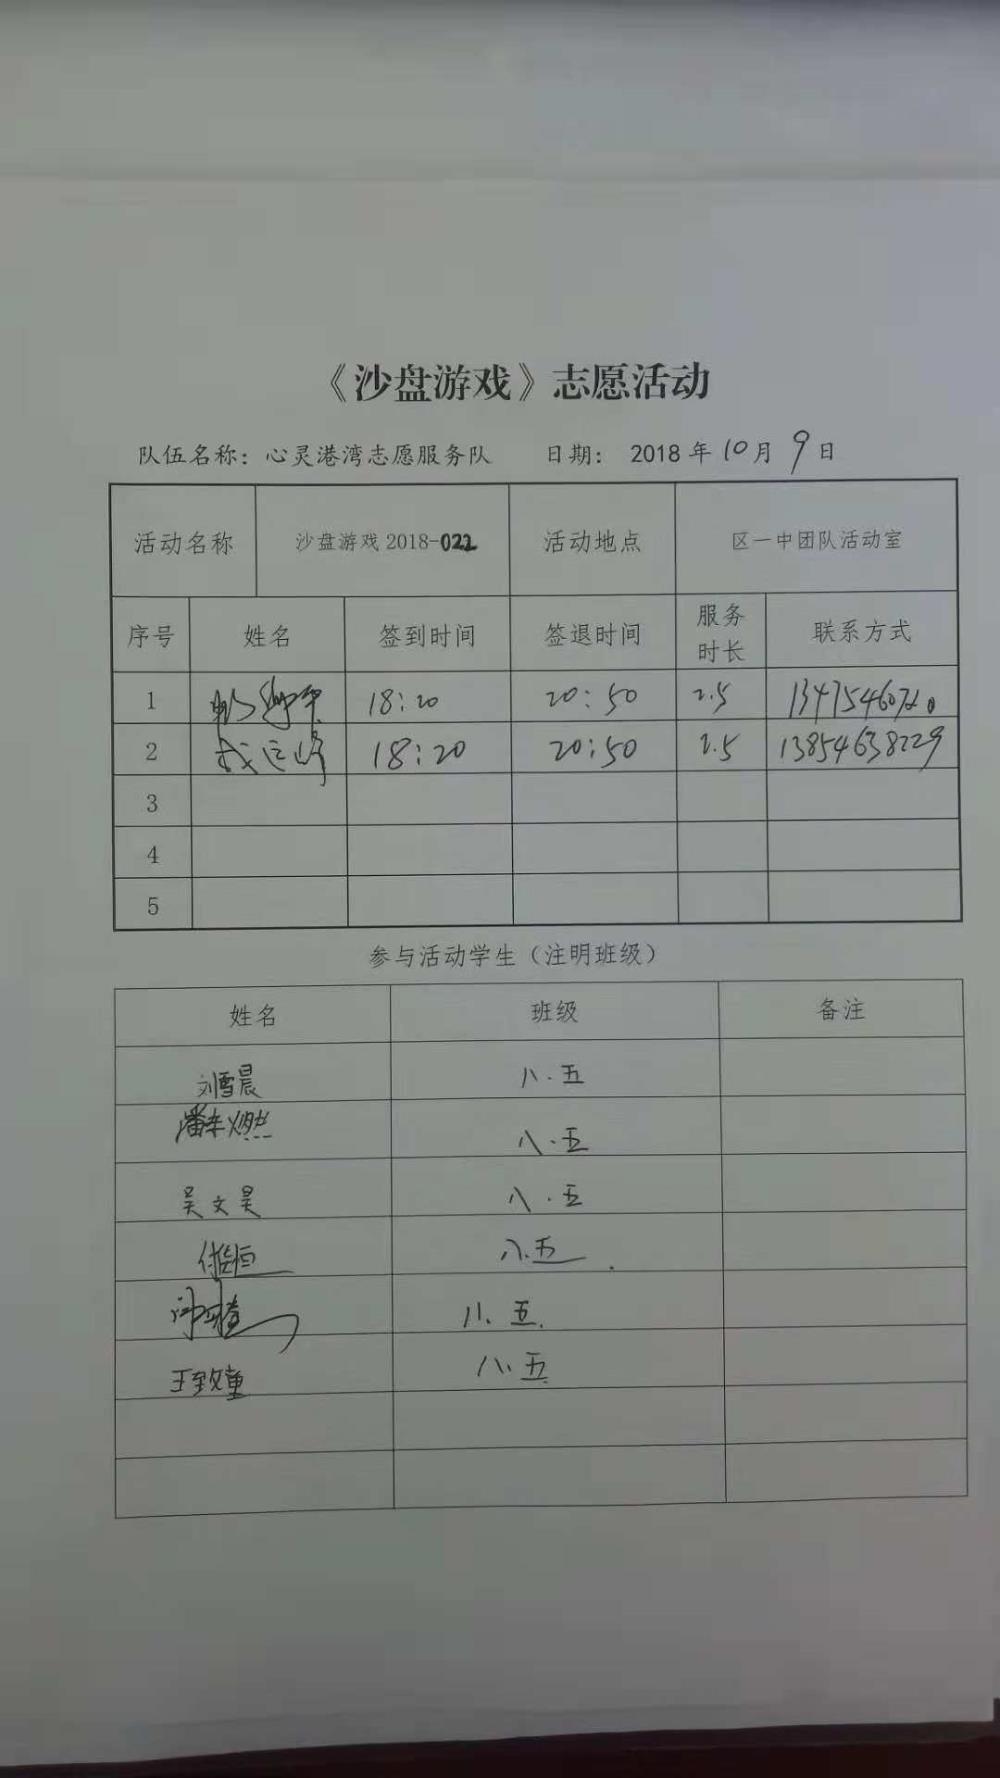 《沙盘游戏》志愿活动
队伍名称：心灵港湾志愿服务队 日期： 2018 年 10 月 9 日
活动名称 沙盘游戏 2018-022 活动地点 区一中团队活动室
序号 姓名 签到时间 签退时间 服务时长 联系方式
1 18:20 20:50 2.5
2 18:20 20:50 2.5 13854638229
3
4
5
参与活动学生（注明班级）
姓名 班级 备注
刘雪晨 八.五
八.五
吴文昊 八.五
八.五
八.五
王致童 八.五